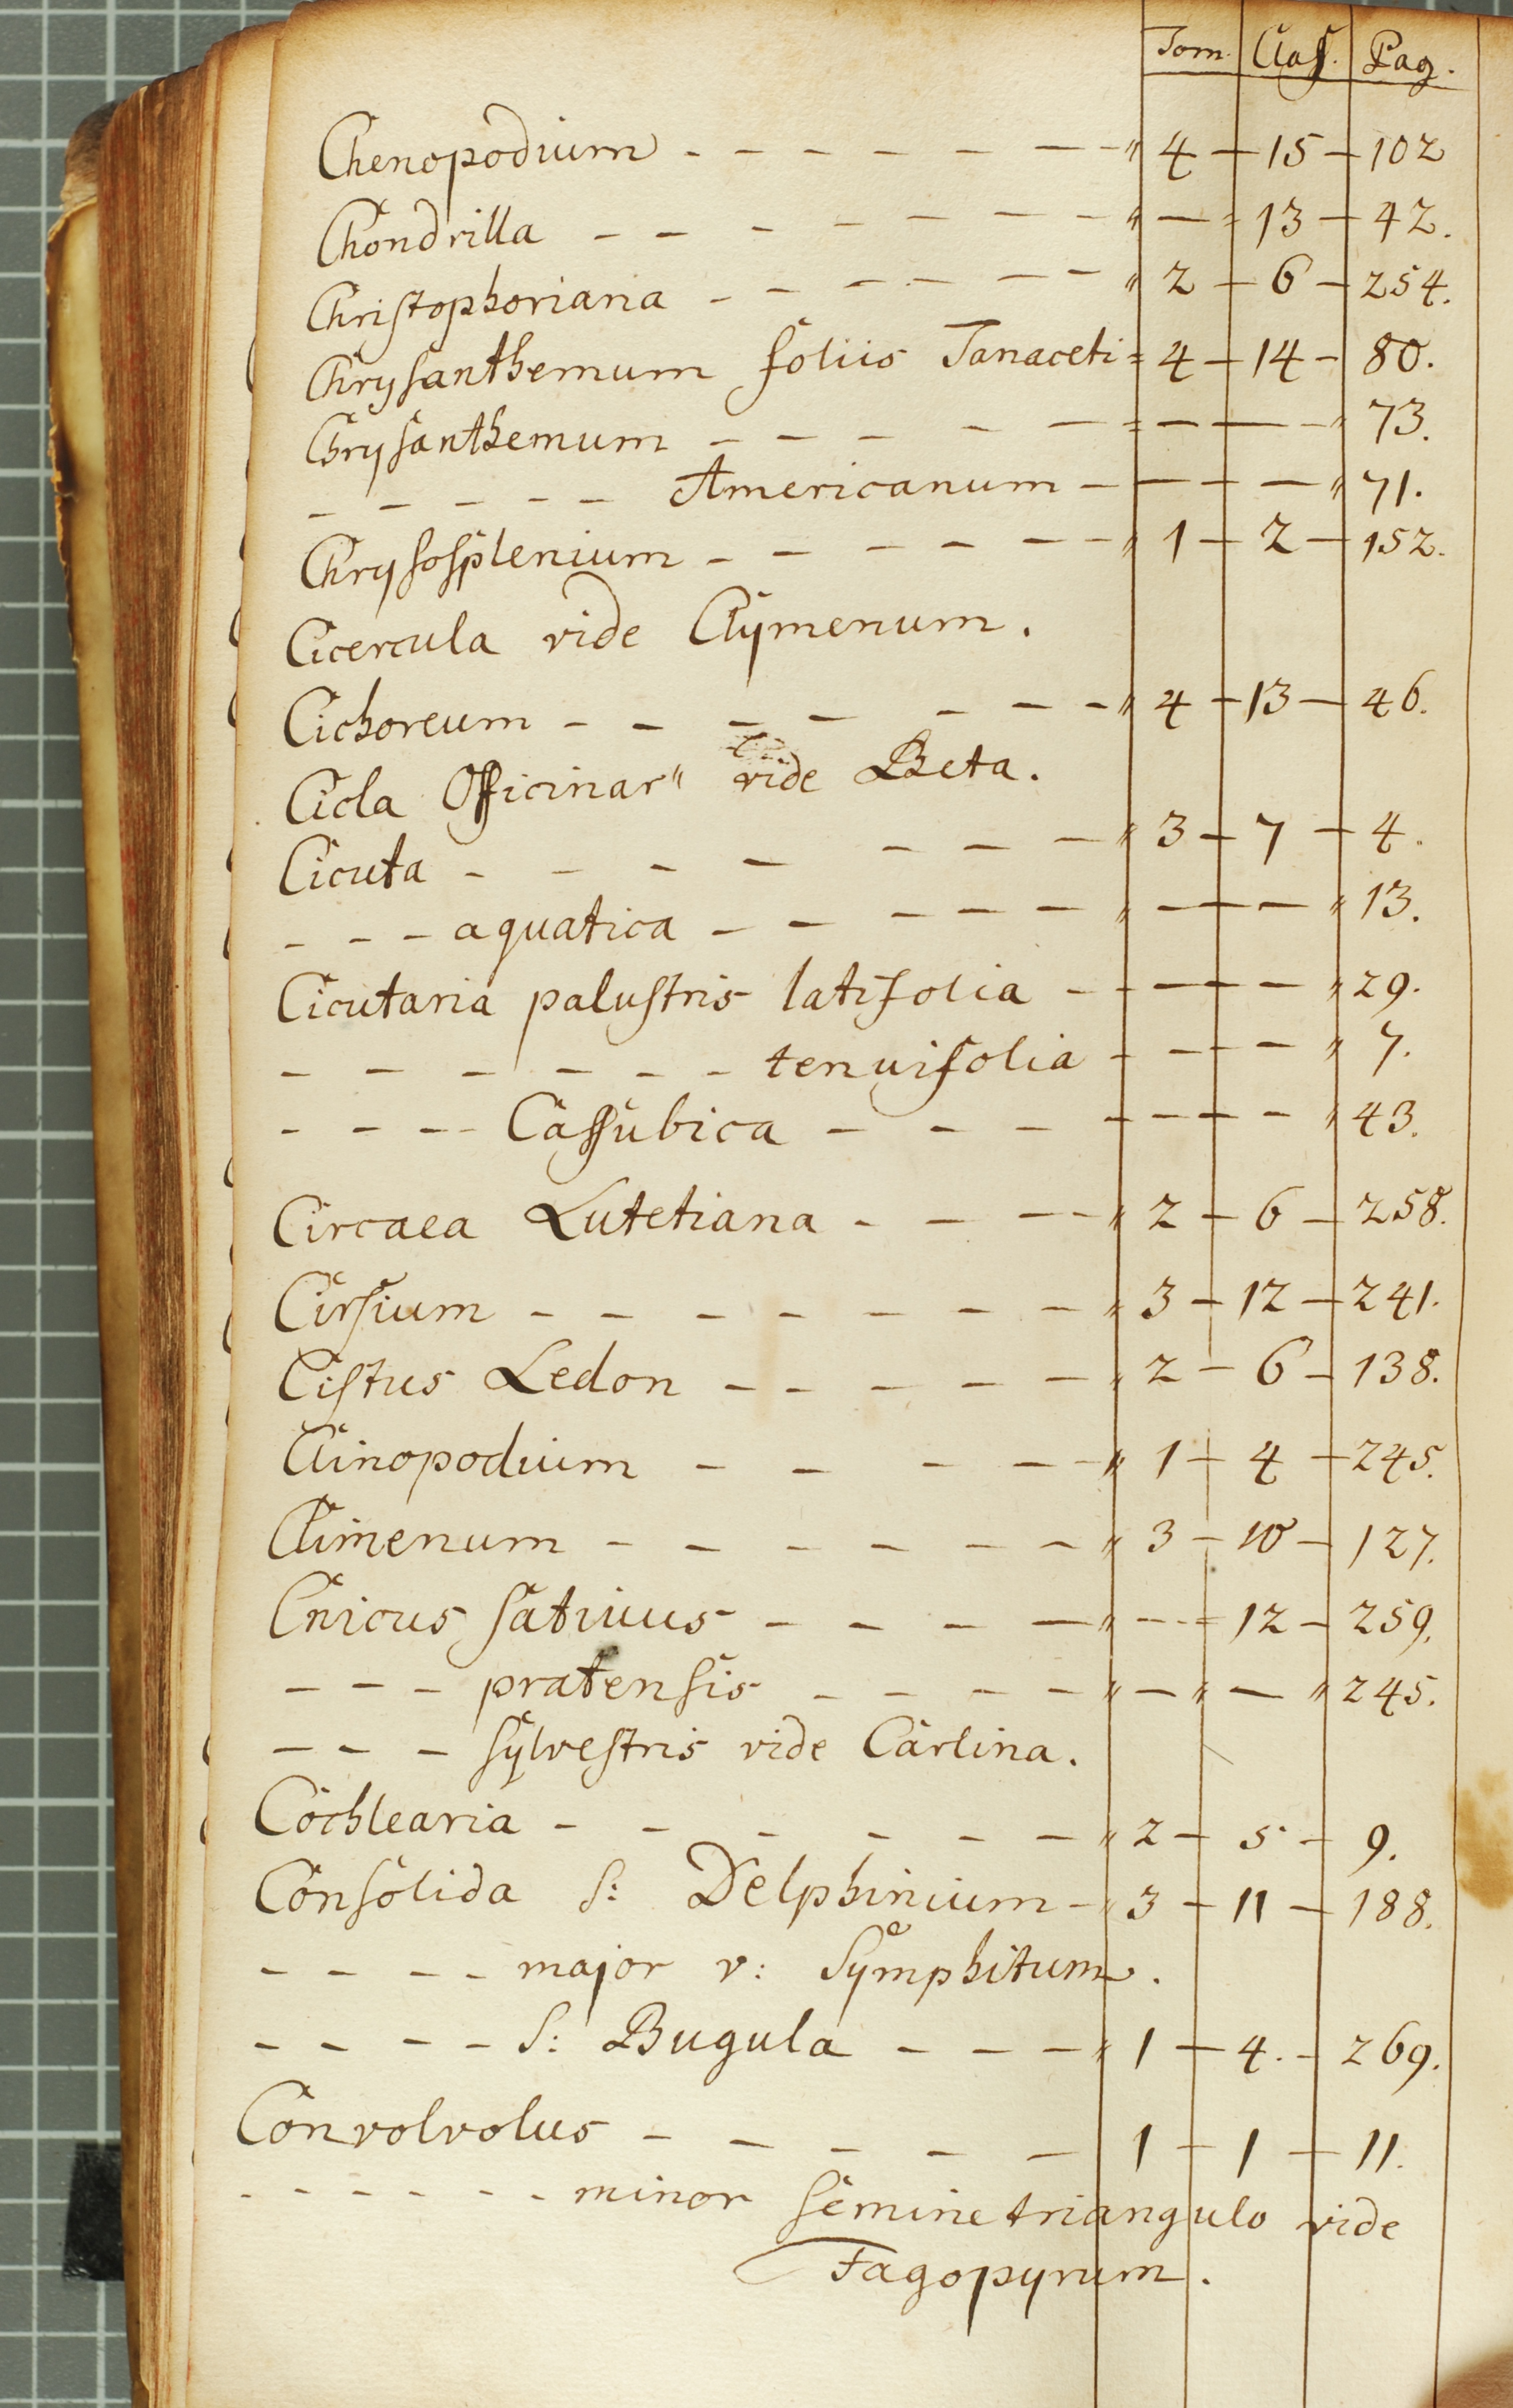 Tom. Clas. Pag.
Chenopodium - - - - - - - " 4 - 15 - 102
Chondrilla - - - - - - - " - - 13 - 42.
Christophoriana - - - - - - " 2 - 6 - 254.
Chrysanthemum foliis Tanaceti = 4 - 14 - 80.
Chrysanthemum - - - - - = - - - " 73.
- - - - - Americanum - - - - " 71.
Chrysosplenium - - - - - - " 1 - 2 - 152.
Cicercula vide Clymenum.
Cichoreum - - - - - - - - " 4 - 13 - 46.
Cicla Officinar" vide Beta.
Cicuta - - - - - - - " 3 - 7 - 4.
- - - aquatica - - - - - " - - - " 13.
Cicutaria palustris latifolia - - - - - " 29.
- - - - - - - tenuifolia - - - - " 7.
- - - - Cassubica - - - - - - - " 43.
Circaea Lutetiana - - - - " 2 - 6 - 258.
Cirsium - - - - - - - " 3 - 12 - 241.
Cistus Ledon - - - - - " 2 - 6 - 138.
Clinopodium - - - - - " 1 - 4 - 245.
Climenum - - - - - - " 3 - 10 - 127.
Cnicus sativus - - - - " - - - 12 - 259.
- - - pratensis - - - - " - " - " 245.
- - - sylvestris vide Carlina.
Cochlearia - - - - - - " 2 - 5 - 9.
Consolida s: Delphinium - " 3 - 11 - 188.
- - - - major v: Symphitum.
- - - - s: Bugula - - - " 1 - 4. - 269.
Convolvolus - - - - - 1 - 1 - 11.
- - - - - - - minor semine triangulo vide
Fagopyrum.